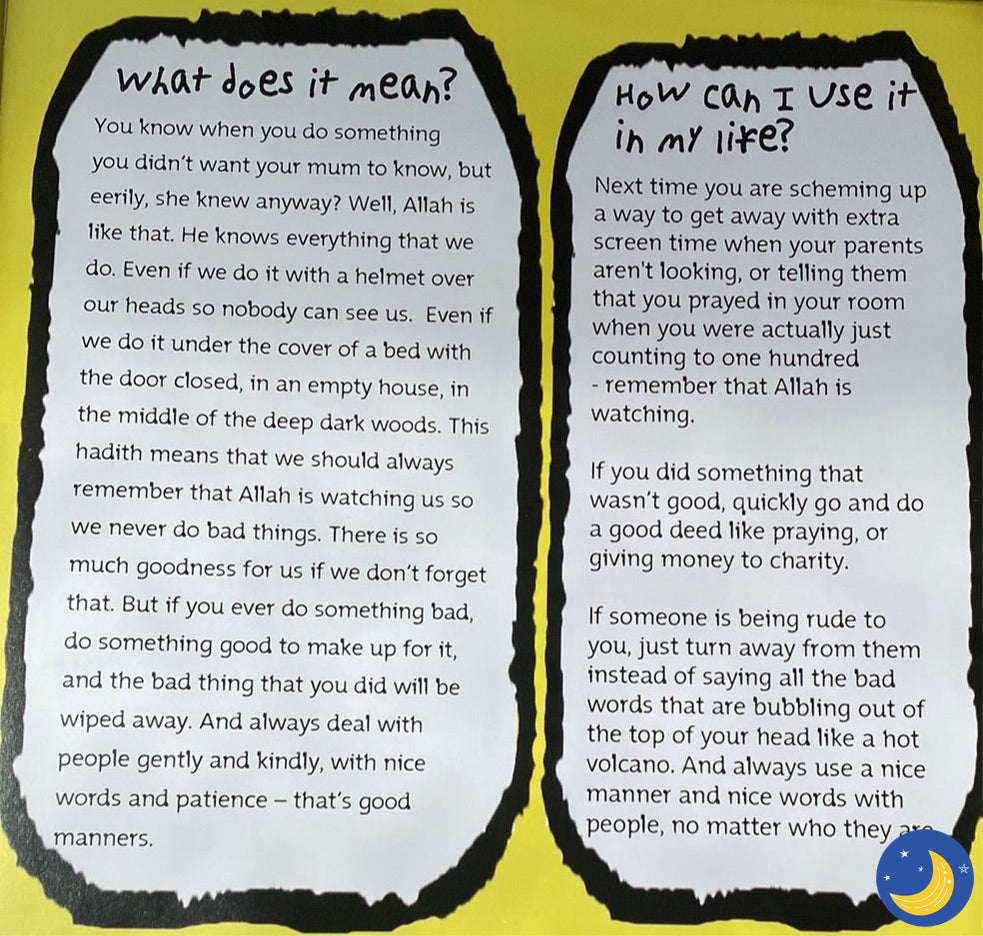 What does it mean?
You know when you do something
you didn't want your mum to know, but
eerily, she knew anyway? Well, Allah is
like that. He knows everything that we
do. Even if we do it with a helmet over
our heads so nobody can see us. Even if
we do it under the cover of a bed with
the door closed, in an empty house, in
the middle of the deep dark woods. This
hadith means that we should always
remember that Allah is watching us so
we never do bad things. There is so
much goodness for us if we don't forget
that. But if you ever do something bad,
do something good to make up for it,
and the bad thing that you did will be
wiped away. And always deal with
people gently and kindly, with nice
words and patience – that's good
manners.
How can I use it
in my life?
Next time you are scheming up
a way to get away with extra
screen time when your parents
aren't looking, or telling them
that you prayed in your room
when you were actually just
counting to one hundred
- remember that Allah is
watching.
If you did something that
wasn't good, quickly go and do
a good deed like praying, or
giving money to charity.
If someone is being rude to
you, just turn away from them
instead of saying all the bad
words that are bubbling out of
the top of your head like a hot
volcano. And always use a nice
manner and nice words with
people, no matter who they are